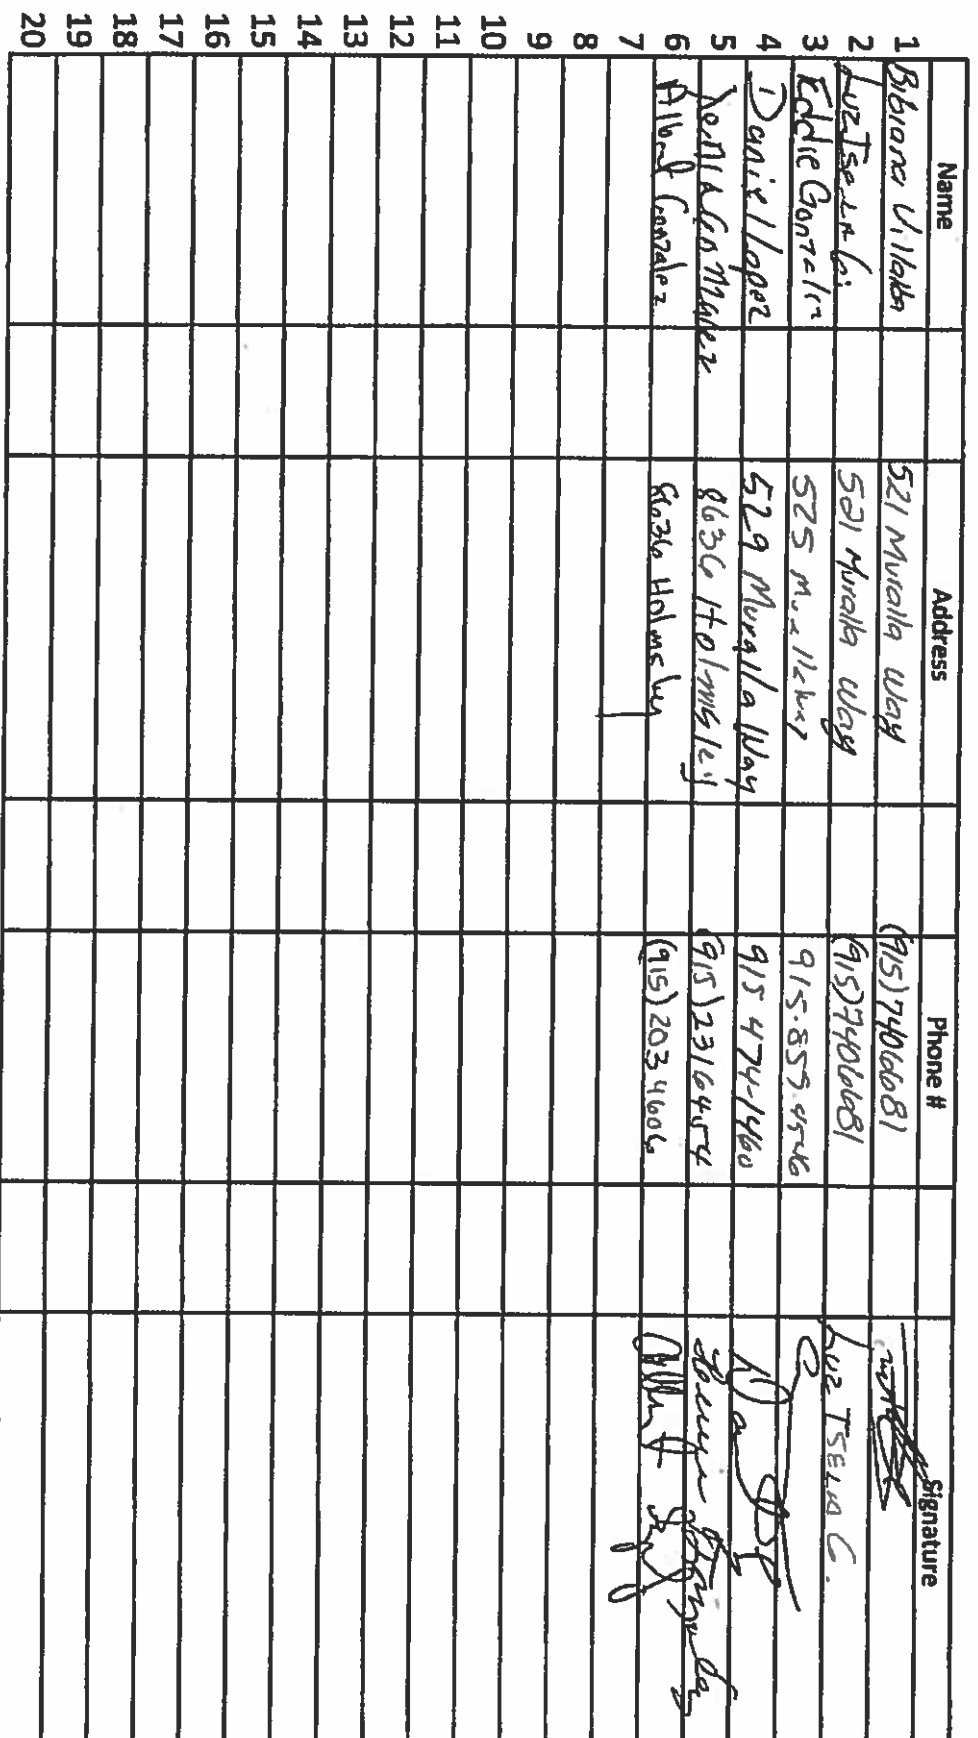 Name Address Phone # Signature
1 Bibiana Villalba 521 Muralla Way (915)7406681
2 Luz Isela G. 521 Muralla Way (915)7406681 Luz Isela G.
3 Eddie Gonzalez 525 915.855.4546
4 Daniel Lopez 529 Muralla Way 915 474-1460
5 Gonzalez 8636 Holmsley (915)2316454
6 Albert Gonzalez 8636 Holmsley (915)2034606
7
8
9
10
11
12
13
14
15
16
17
18
19
20